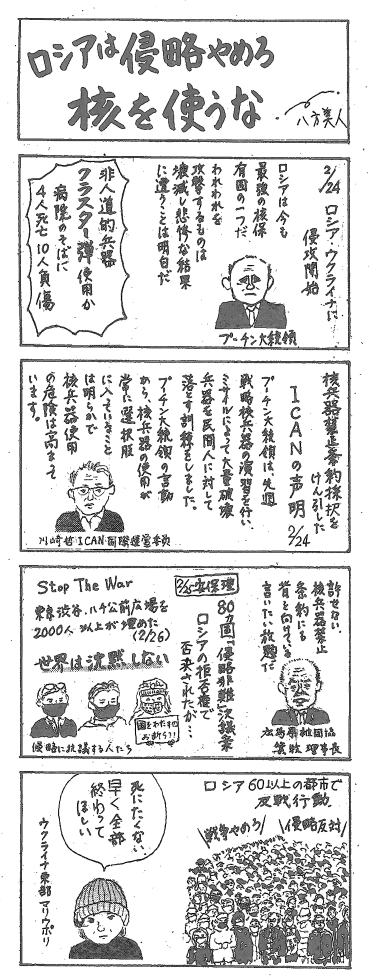 ロシアは侵略やめろ
核を使うな
八方美人
2/24 ロシア・ウクライナに
侵攻開始
ロシアは今も
最強の核保
有国の一つだ
われわれを
攻撃するものは
壊滅し悲惨な結果
に遭うことは明白だ
プーチン大統領
非人道的兵器
クラスター弾使用か
病院のそばに
4人死亡10人負傷
核兵器禁止条約採択を
けん引した
ICANの声明 2/24
プーチン大統領は、先週
戦略核兵器の演習を行い、
ミサイルによって大量破壊
兵器を民間人に対して
落とす訓練をしました。
プーチン大統領の言動
から、核兵器の使用が
常に選択肢
に入っていること
は明らかで
核兵器使用
の危険は高まって
います。
川崎哲・ICAN国際運営委員
許せない。
核兵器禁止
条約にも
背を向けている
言いたい放題だ
広島県被団協
箕牧理事長
2/25 安保理
80カ国「侵略非難」決議案
ロシアの拒否権で
否決されたが…
Stop The War
東京渋谷・ハチ公前広場を
2000人以上が埋めた
(2/26)
世界は沈黙しない
国をわたすの
お断り!!
侵略に抗議する人たち
ロシア60以上の都市で
反戦行動
侵略反対
戦争やめろ
死にたくない
早く全部
終わって
ほしい
ウクライナ東部マリウポリ